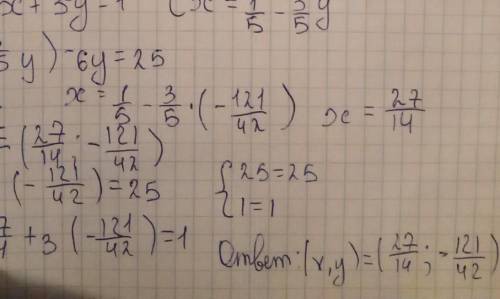 x+3y=1 { x = 1/5 - 3/5 y
y) - 6y = 25
x = 1/5 - 3/5 · (-121/42) x = 27/14
= (27/14 ; -121/42)
(-121/42) = 25 { 25 = 25
+ 3 (-121/42) = 1 { 1 = 1
Ответ: (x, y) = (27/14 ; -121/42)